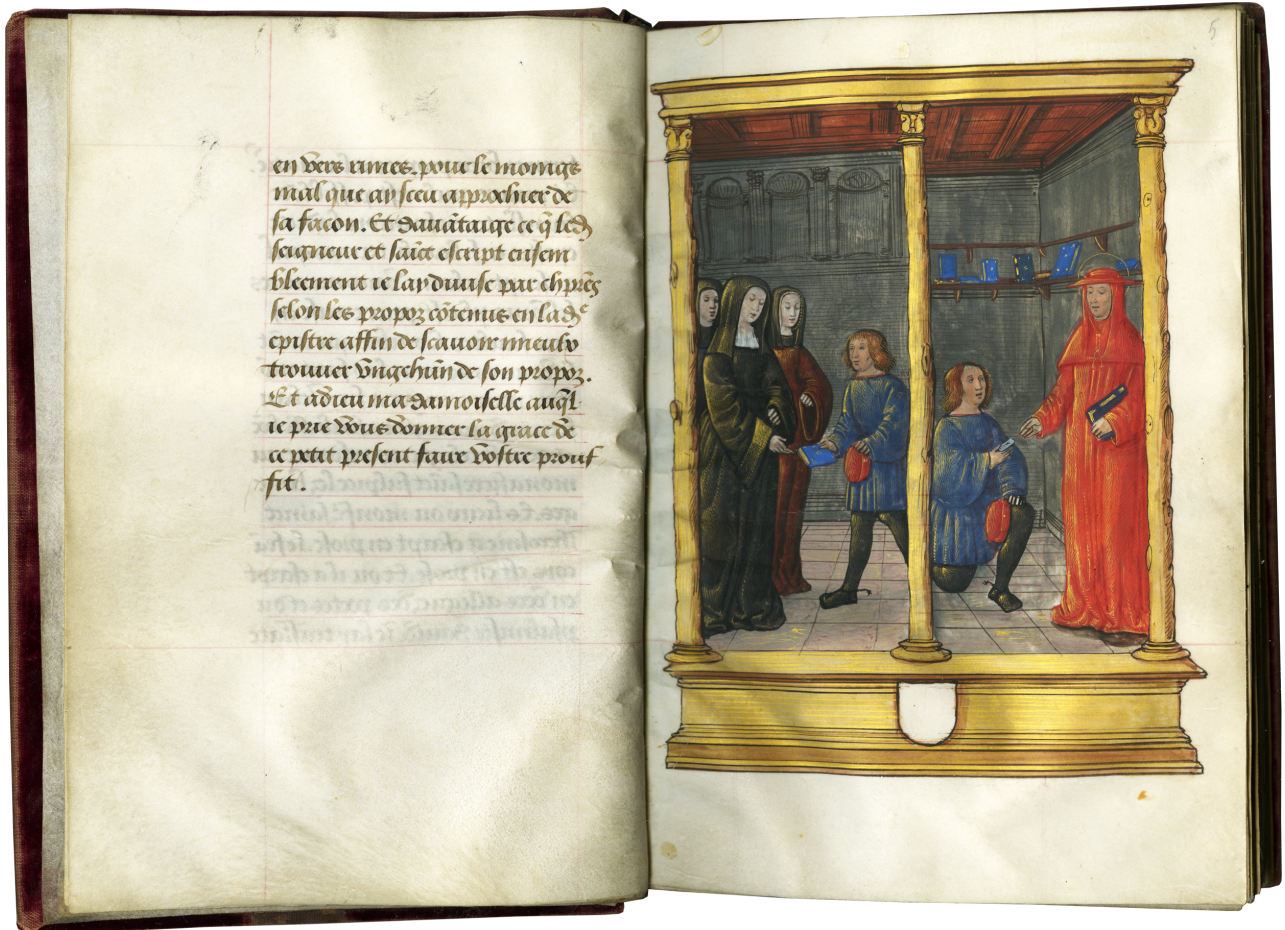 en vers rimes. pour le moings
mal que ay sceu approchier de
sa facon. Et davātaige ce q̄ led
seigneur et saīct escript ensem
blement ie lay divise par chp̄res
selon les propoz cōtenus en lad
epistre affin de scavoir mieulx
trouver ungchūn de son propoz.
Et adieu ma damoiselle auql̄
ie prie vous donner la grace de
ce petit present faire vostre prouf
fit.
5